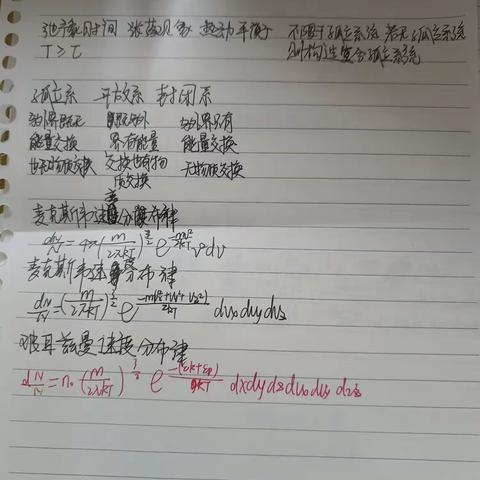 弛豫时间 张落见多 热动平衡 不限于孤立系统 若无孤立系统
T≥τ 则构造复合孤立系统
孤立系 开放系 封闭系
与外界既无 既与外 与外界只有
能量交换 界有能量 能量交换
也无物质交换 交换也有物 无物质交换
质交换
麦克斯韦速率分布律
dN/N=4π(m/2πkT)^{3/2} e^{-mv²/2kT} v²dv
麦克斯韦速度分布律
dN/N=(m/2πkT)^{3/2} e^{-m(vx²+vy²+vz²)/2kT} dvxdvydvz
玻耳兹曼速度分布律
dN/N=n₀(m/2πkT)^{3/2} e^{-(εk+εp)/kT} dxdydzdvxdvydvz